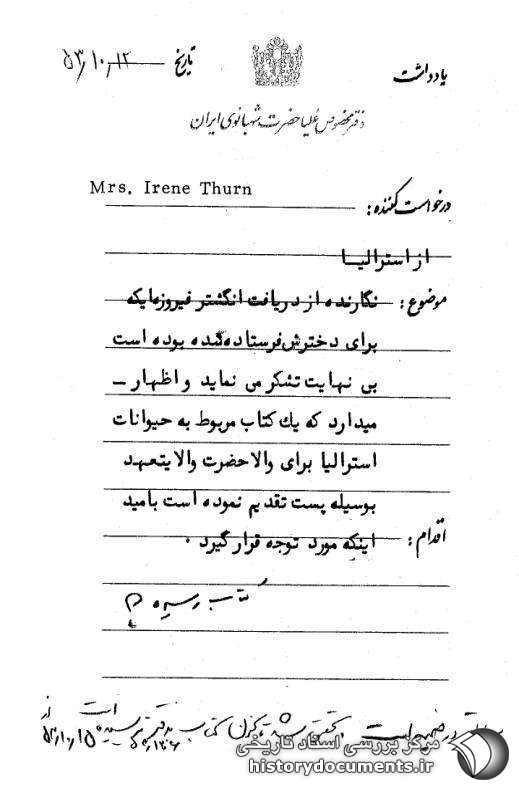 یادداشت
تاریخ ۵۳/۱۰/۱۲
دفتر مخصوص علیاحضرت شهبانوی ایران
درخواست کننده: Mrs. Irene Thurn
از استرالیا
موضوع: نگارنده از دریافت انگشتر فیروزه‌ایکه
برای دخترش فرستاده شده بوده است
بی نهایت تشکر می نماید و اظهار –
میدارد که یک کتاب مربوط به حیوانات
استرالیا برای والاحضرت ولایتعهد
بوسیله پست تقدیم نموده است بامید
اقدام: اینکه مورد توجه قرار گیرد .
کتاب رسیده
تحقیق شد کتاب
مرکز بررسی اسناد تاریخی
historydocuments.ir